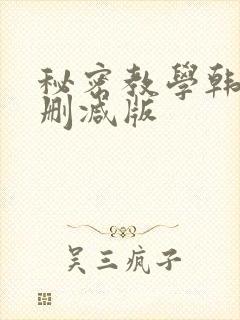 秘密教學韩
删减版
吴三疯子